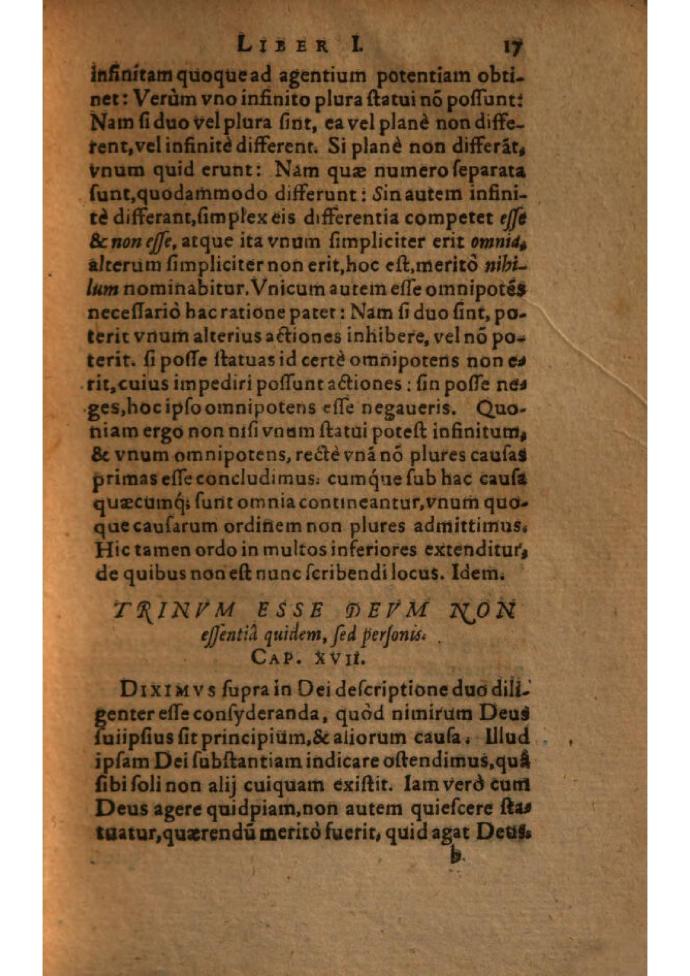 LIBER I. 17
infinitam quoque ad agentium potentiam obti-
net: Verùm vno infinito plura statui nõ possunt:
Nam si duo vel plura sint, ea vel planè non diffe-
rent, vel infinitè different. Si planè non differãt,
vnum quid erunt: Nam quæ numero separata
sunt, quodammodo differunt: Sin autem infini-
tè differant, simplex eis differentia competet esse
& non esse, atque ita vnum simpliciter erit omnia,
alterum simpliciter non erit, hoc est, meritò nihi-
lum nominabitur. Vnicum autem esse omnipotẽs
necessariò hac ratione patet: Nam si duo sint, po-
terit vnum alterius actiones inhibere, vel nõ po-
terit. si posse statuas id certè omnipotens non e-
rit, cuius impediri possunt actiones: sin posse ne-
ges, hoc ipso omnipotens esse negaueris. Quo-
niam ergo non nisi vnum statui potest infinitum,
& vnum omnipotens, rectè vnã nõ plures causas
primas esse concludimus: cumque sub hac causa
quæcumq; sunt omnia contineantur, vnum quo-
que causarum ordinem non plures admittimus.
Hic tamen ordo in multos inferiores extenditur,
de quibus non est nunc scribendi locus. Idem.
TRINVM ESSE DEVM NON
essentiâ quidem, sed personis.
CAP. XVII.
DIXIMVS supra in Dei descriptione duo dili-
genter esse consyderanda, quòd nimirum Deus
suiipsius sit principium, & aliorum causa. Illud
ipsam Dei substantiam indicare ostendimus, quâ
sibi soli non alij cuiquam existit. Iam verò cum
Deus agere quidpiam, non autem quiescere sta-
tuatur, quærendũ meritò fuerit, quid agat Deus.
b